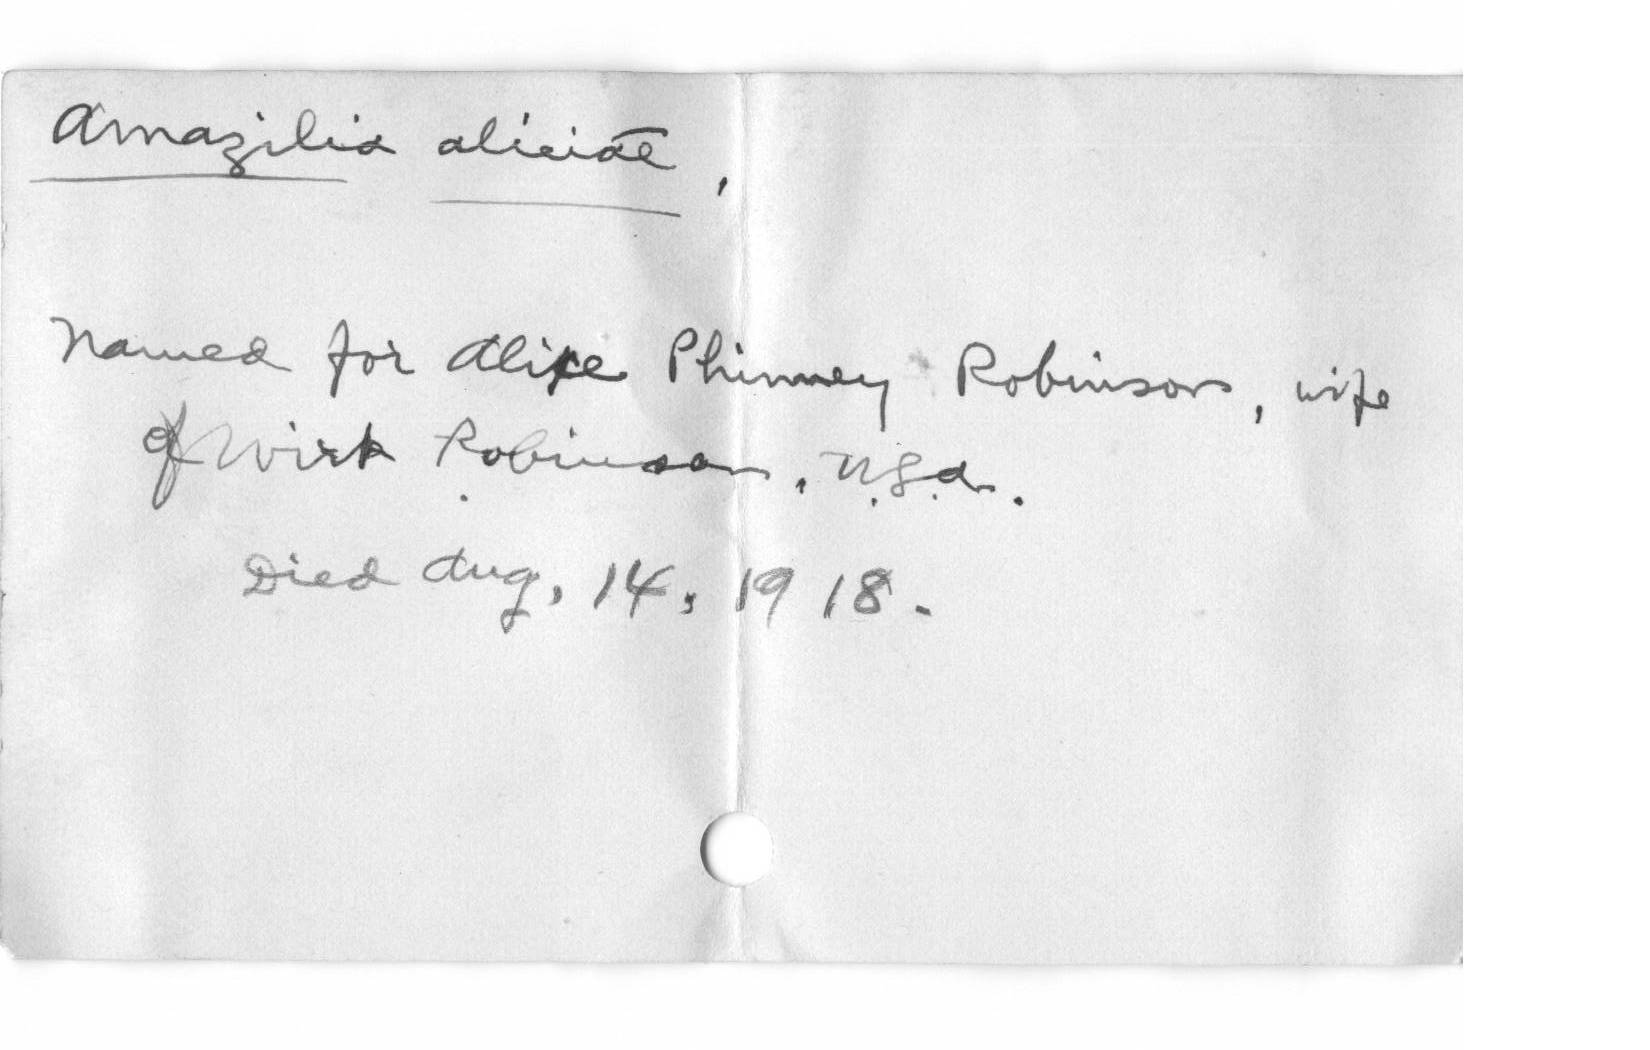 Amazilia aliciae,
Named for Alice Phinney Robinson, wife
of Wirt Robinson, U.S.A.
Died Aug, 14, 1918.